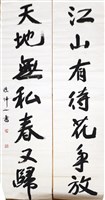 江山有待花争放
天地無私春又歸